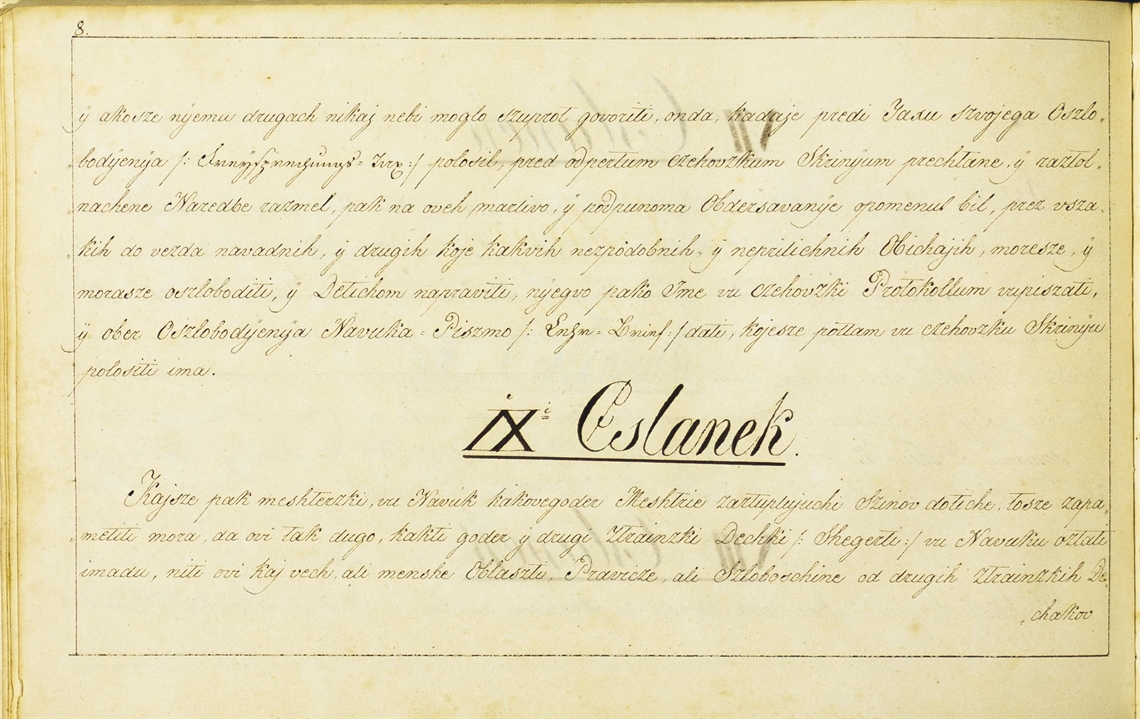 8.
ÿ akosze nÿemu drugach nikaj nebi moglo szuprot govoriti, onda, kadaje predi Taxu szvojega Oszlo-
bodjenÿa /: Freÿsprechungs-Tax :/ polosil, pred odpertum czehovzkum Skrinÿum prechtane, ÿ raztol-
nachene Naredbe razmel, pak na oveh marlivo, ÿ podpunoma Obdersavanÿe opomenul bil, prez vsza-
kih do vezda navadnih, ÿ drugih koje kakvih nezpodobnih, ÿ neprilichnih Obichajih, moresze, ÿ
morasze oszloboditi, ÿ Detichom napraviti, nÿegvo pako Ime vu czehovzki Protokollum vupiszati,
ÿ ober Oszlobodjenÿa Navuka-Piszmo /: Lehr-Brief :/ dati, kojesze potlam vu czehovzku Skrinÿu
polositi ima.
IXi Cslanek.
Kajsze pak meshterzki, vu Navuk kakovegoder Meshtrie zaztuplyujuchi Szinov dotiche, tosze zapa-
metiti mora, da ovi tak dugo, kakti goder ÿ drugi Ztrainzki Dechki /: Shegerti :/ vu Navuku oztati
imadu, niti ovi kaj vech, ali menshe Oblaszti, Pravicze, ali Szloboschine od drugih Ztrainzkih De-
chakov